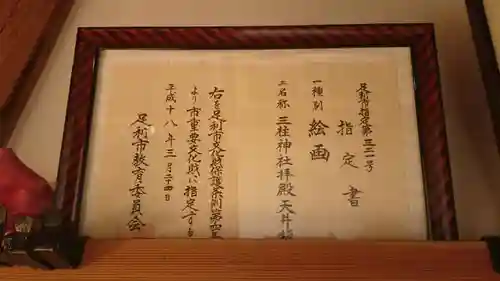 足利市指令第三二一号
指定書
一種別 絵画
二名称 三柱神社拝殿天井
右を足利市文化財保護条例第四条
より市重要文化財に指定する
平成十八年三月二十四日
足利市教育委員会